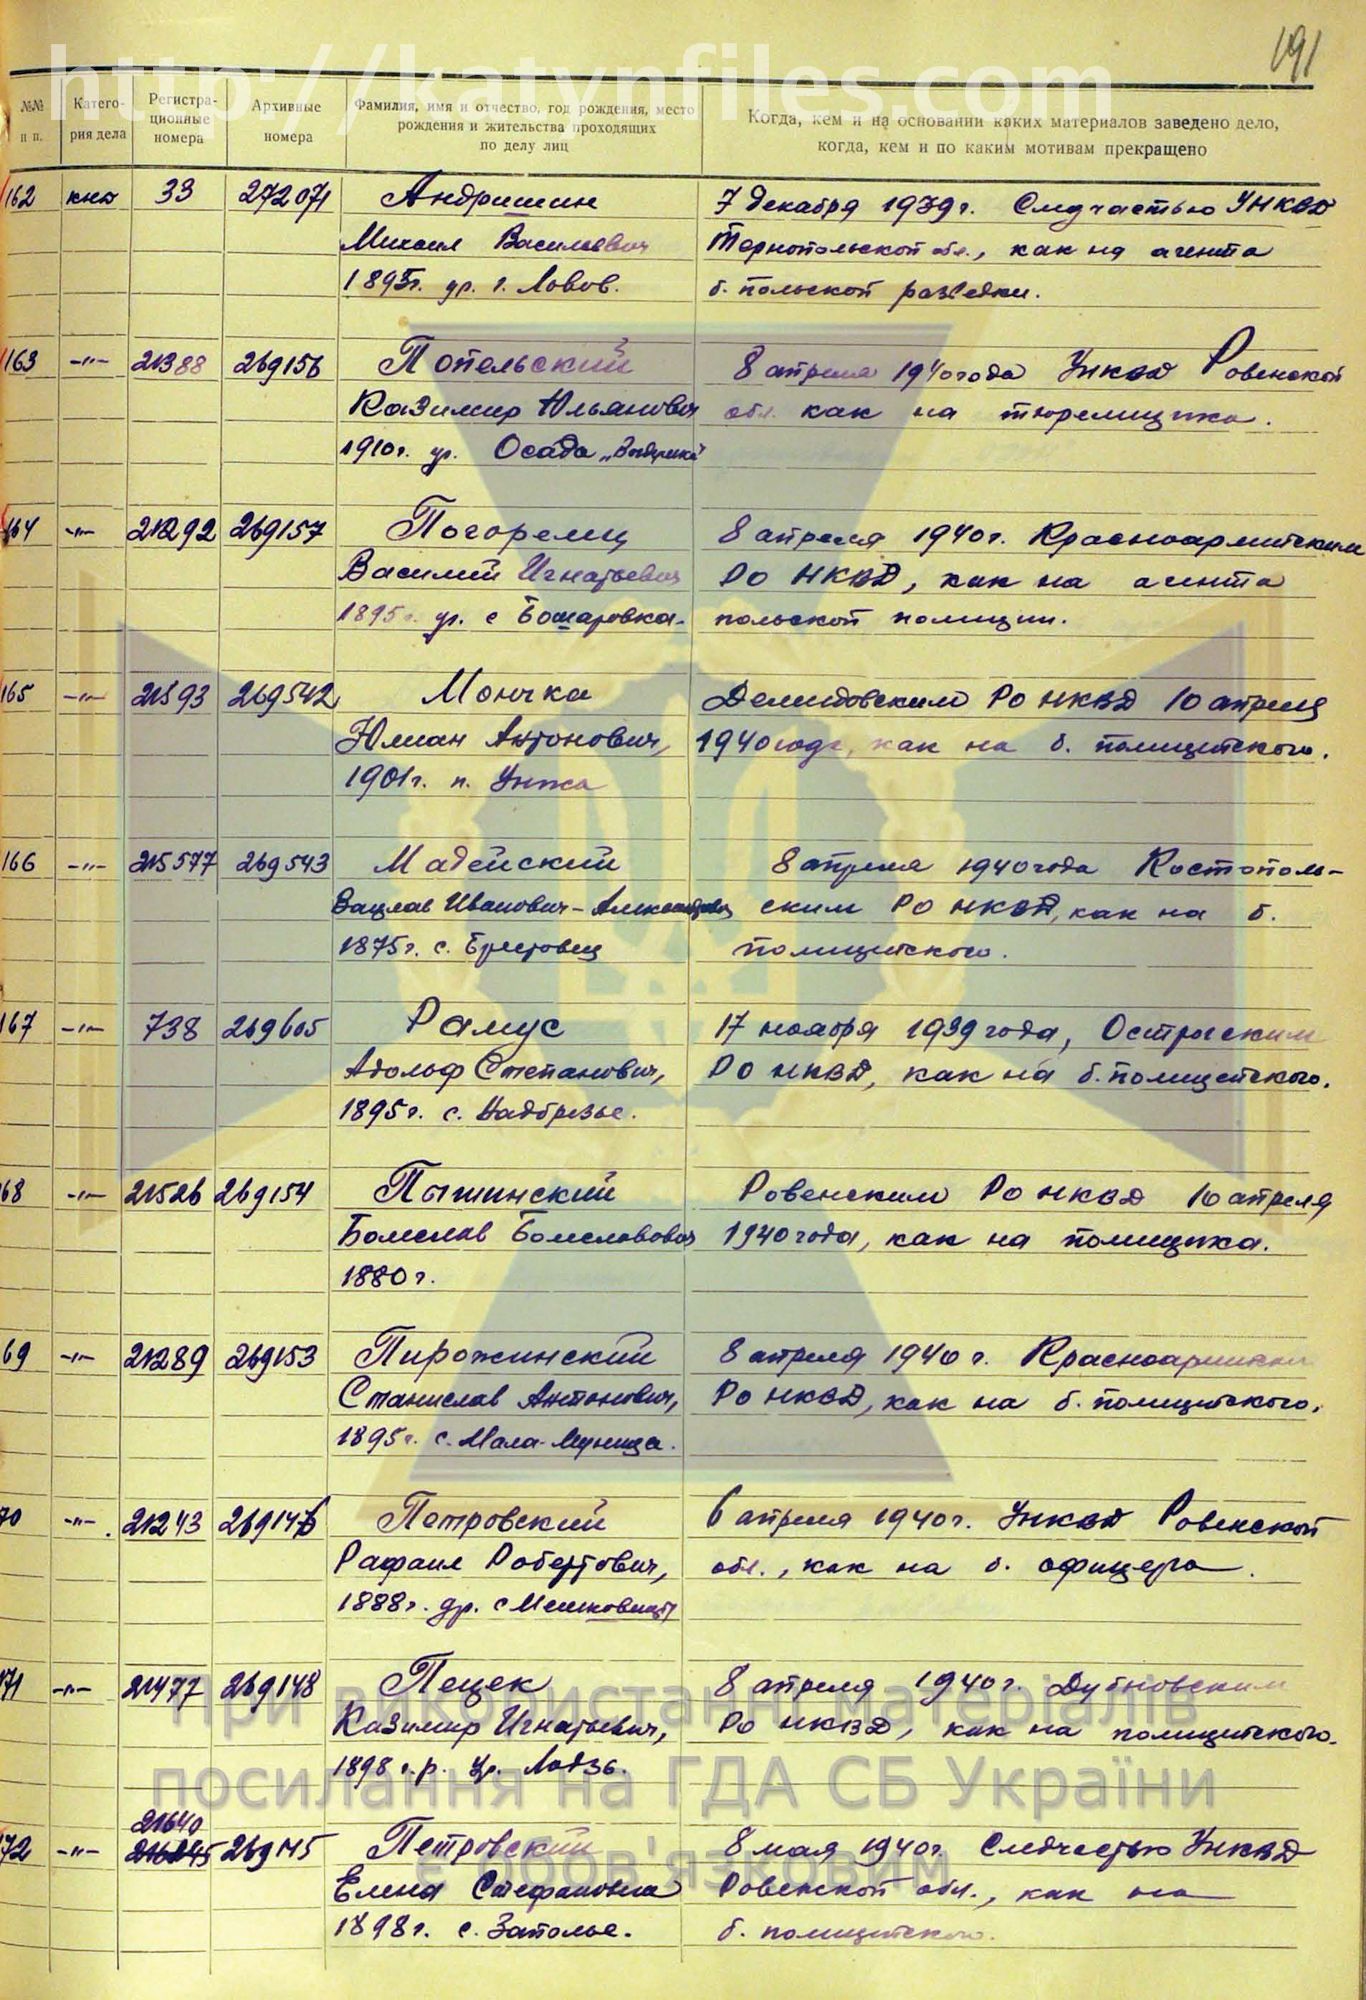 191
http://katynfiles.com
№№ п п.
Катего-
рия дела
Регистра-
ционные
номера
Архивные
номера
Фамилия, имя и отчество, год рождения, место
рождения и жительства проходящих
по делу лиц
Когда, кем и на основании каких материалов заведено дело,
когда, кем и по каким мотивам прекращено
162 33 272071 Андришин 7 декабря 1939г. Следчастью УНКВД
Михаил Васильевич Тарнопольской обл., как на агента
1895г. ур. г. Львов. б. польской разведки.
163 -"- 21388 269156 Попельский 8 апреля 1940 года УНКВД Ровенской
Казимир Юльянович обл. как на тюремщика.
1910г. ур. Осада
164 -"- 21292 269157 Погорелец 8 апреля 1940г. Красноармейским
Василий Игнатьевич РО НКВД, как на агента
1895г. ур. с Бошаровка. польской полиции.
165 -"- 269542 Мончка Демидовским РО НКВД 10 апреля
Юлиан Антонович, 1940 года, как на б. полицейского.
1901г. п. Унжа
166 -"- 215577 269543 Мадейский 8 апреля 1940 года Костополь-
Вацлав Иванович-Александрович ским РО НКВД, как на б.
1875г. с. полицейского.
167 -"- 738 269605 Рамус 17 ноября 1939 года, Острогским
Адольф Степанович, РО НКВД, как на б. полицейского.
1895г. с. Надбрезье.
68 -"- 21526 269154 Пыжинский Ровенским РО НКВД 10 апреля
Болеслав Болеславович 1940 года, как на полицейка.
1880г.
69 -"- 21289 269153 Пирожинский 8 апреля 1940г.
Станислав Антонович, РО НКВД, как на б. полицейского.
1895г. с. Мала-
70 -"- 21243 269146 Петровский 6 апреля 1940г. УНКВД Ровенской
Рафаил Робертович, обл., как на б. офицера.
1888г. с
171 -"- 21477 269148 Пецек 8 апреля 1940г. Дубновским
Казимир Игнатьевич, РО НКВД, как на полицейского.
1898 г.р. ур. Лодзь.
21640
72 -"- 269145 Петровский 8 мая 1940г. Следчастью УНКВД
Елена Стефановна Ровенской обл., как на
1898г. с. Заполье. б. полицейского.
При використанні матеріалів
посилання на ГДА СБ України
є обов'язковим